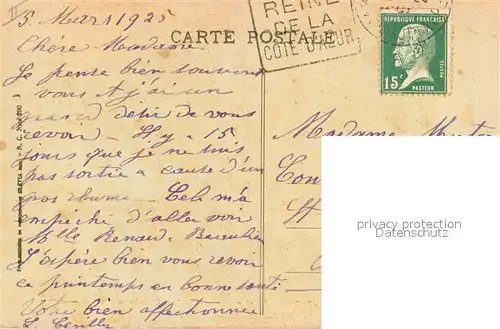 5 Mars 1925
Chère Madame
Je pense bien souvent
à vous et j'ai un
grand désir de vous
revoir - Il y a 15
jours que je ne suis
pas sortie a cause d'un
gros rhume - Cela m'a
empêché d'aller voir
Mlle Renard - Beaulieu
J'espère bien vous revoir
ce printemps en bonne santé
Votre bien affectionnée
REINE
DE LA
COTE D'AZUR
CARTE POSTALE
REPUBLIQUE FRANÇAISE
15c
PASTEUR
POSTES
Madame
privacy protection
Datenschutz